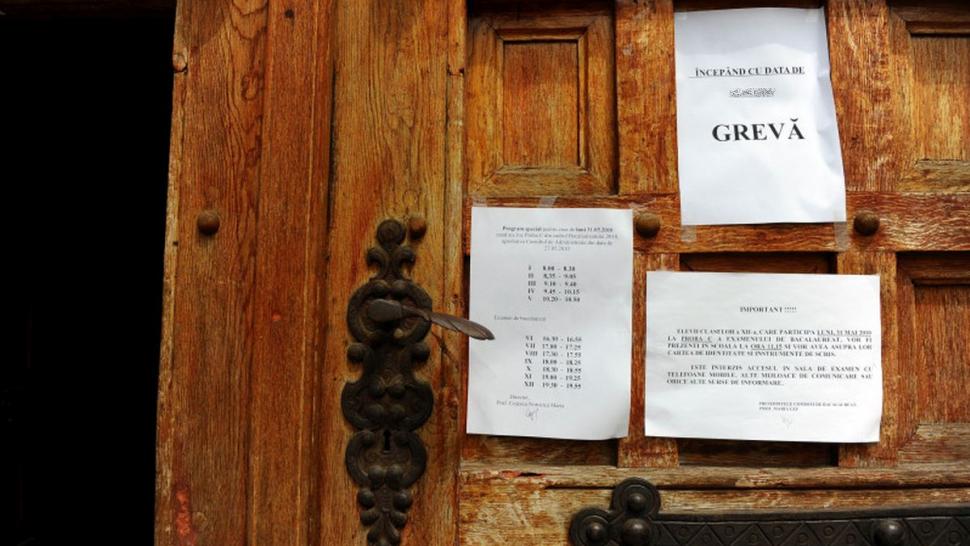 ÎNCEPÂND CU DATA DE
GREVĂ
Program special pentru ziua de luni 31.05.2010
aprobat în Consiliul de Administrație din data de
27.05.2010
I 8.00 - 8.30
II 8.35 - 9.05
III 9.10 - 9.40
IV 9.45 - 10.15
V 10.20 - 10.50
VI 16.30 - 16.55
VII 17.00 - 17.25
VIII 17.30 - 17.55
IX 18.00 - 18.25
X 18.30 - 18.55
XI 19.00 - 19.25
XII 19.30 - 19.55
Director,
Prof.
IMPORTANT !!!!!
ELEVII CLASELOR a XII-a, CARE PARTICIPA LUNI, 31 MAI 2010
LA PROBA C A EXAMENULUI DE BACALAUREAT, VOR FI
PREZENTI IN SCOALA LA ORA 11,15 SI VOR AVEA ASUPRA LOR
CARTEA DE IDENTITATE SI INSTRUMENTE DE SCRIS.
ESTE INTERZIS ACCESUL IN SALA DE EXAMEN CU
TELEFOANE MOBILE, ALTE MIJLOACE DE COMUNICARE SAU
ORICE ALTE SURSE DE INFORMARE.